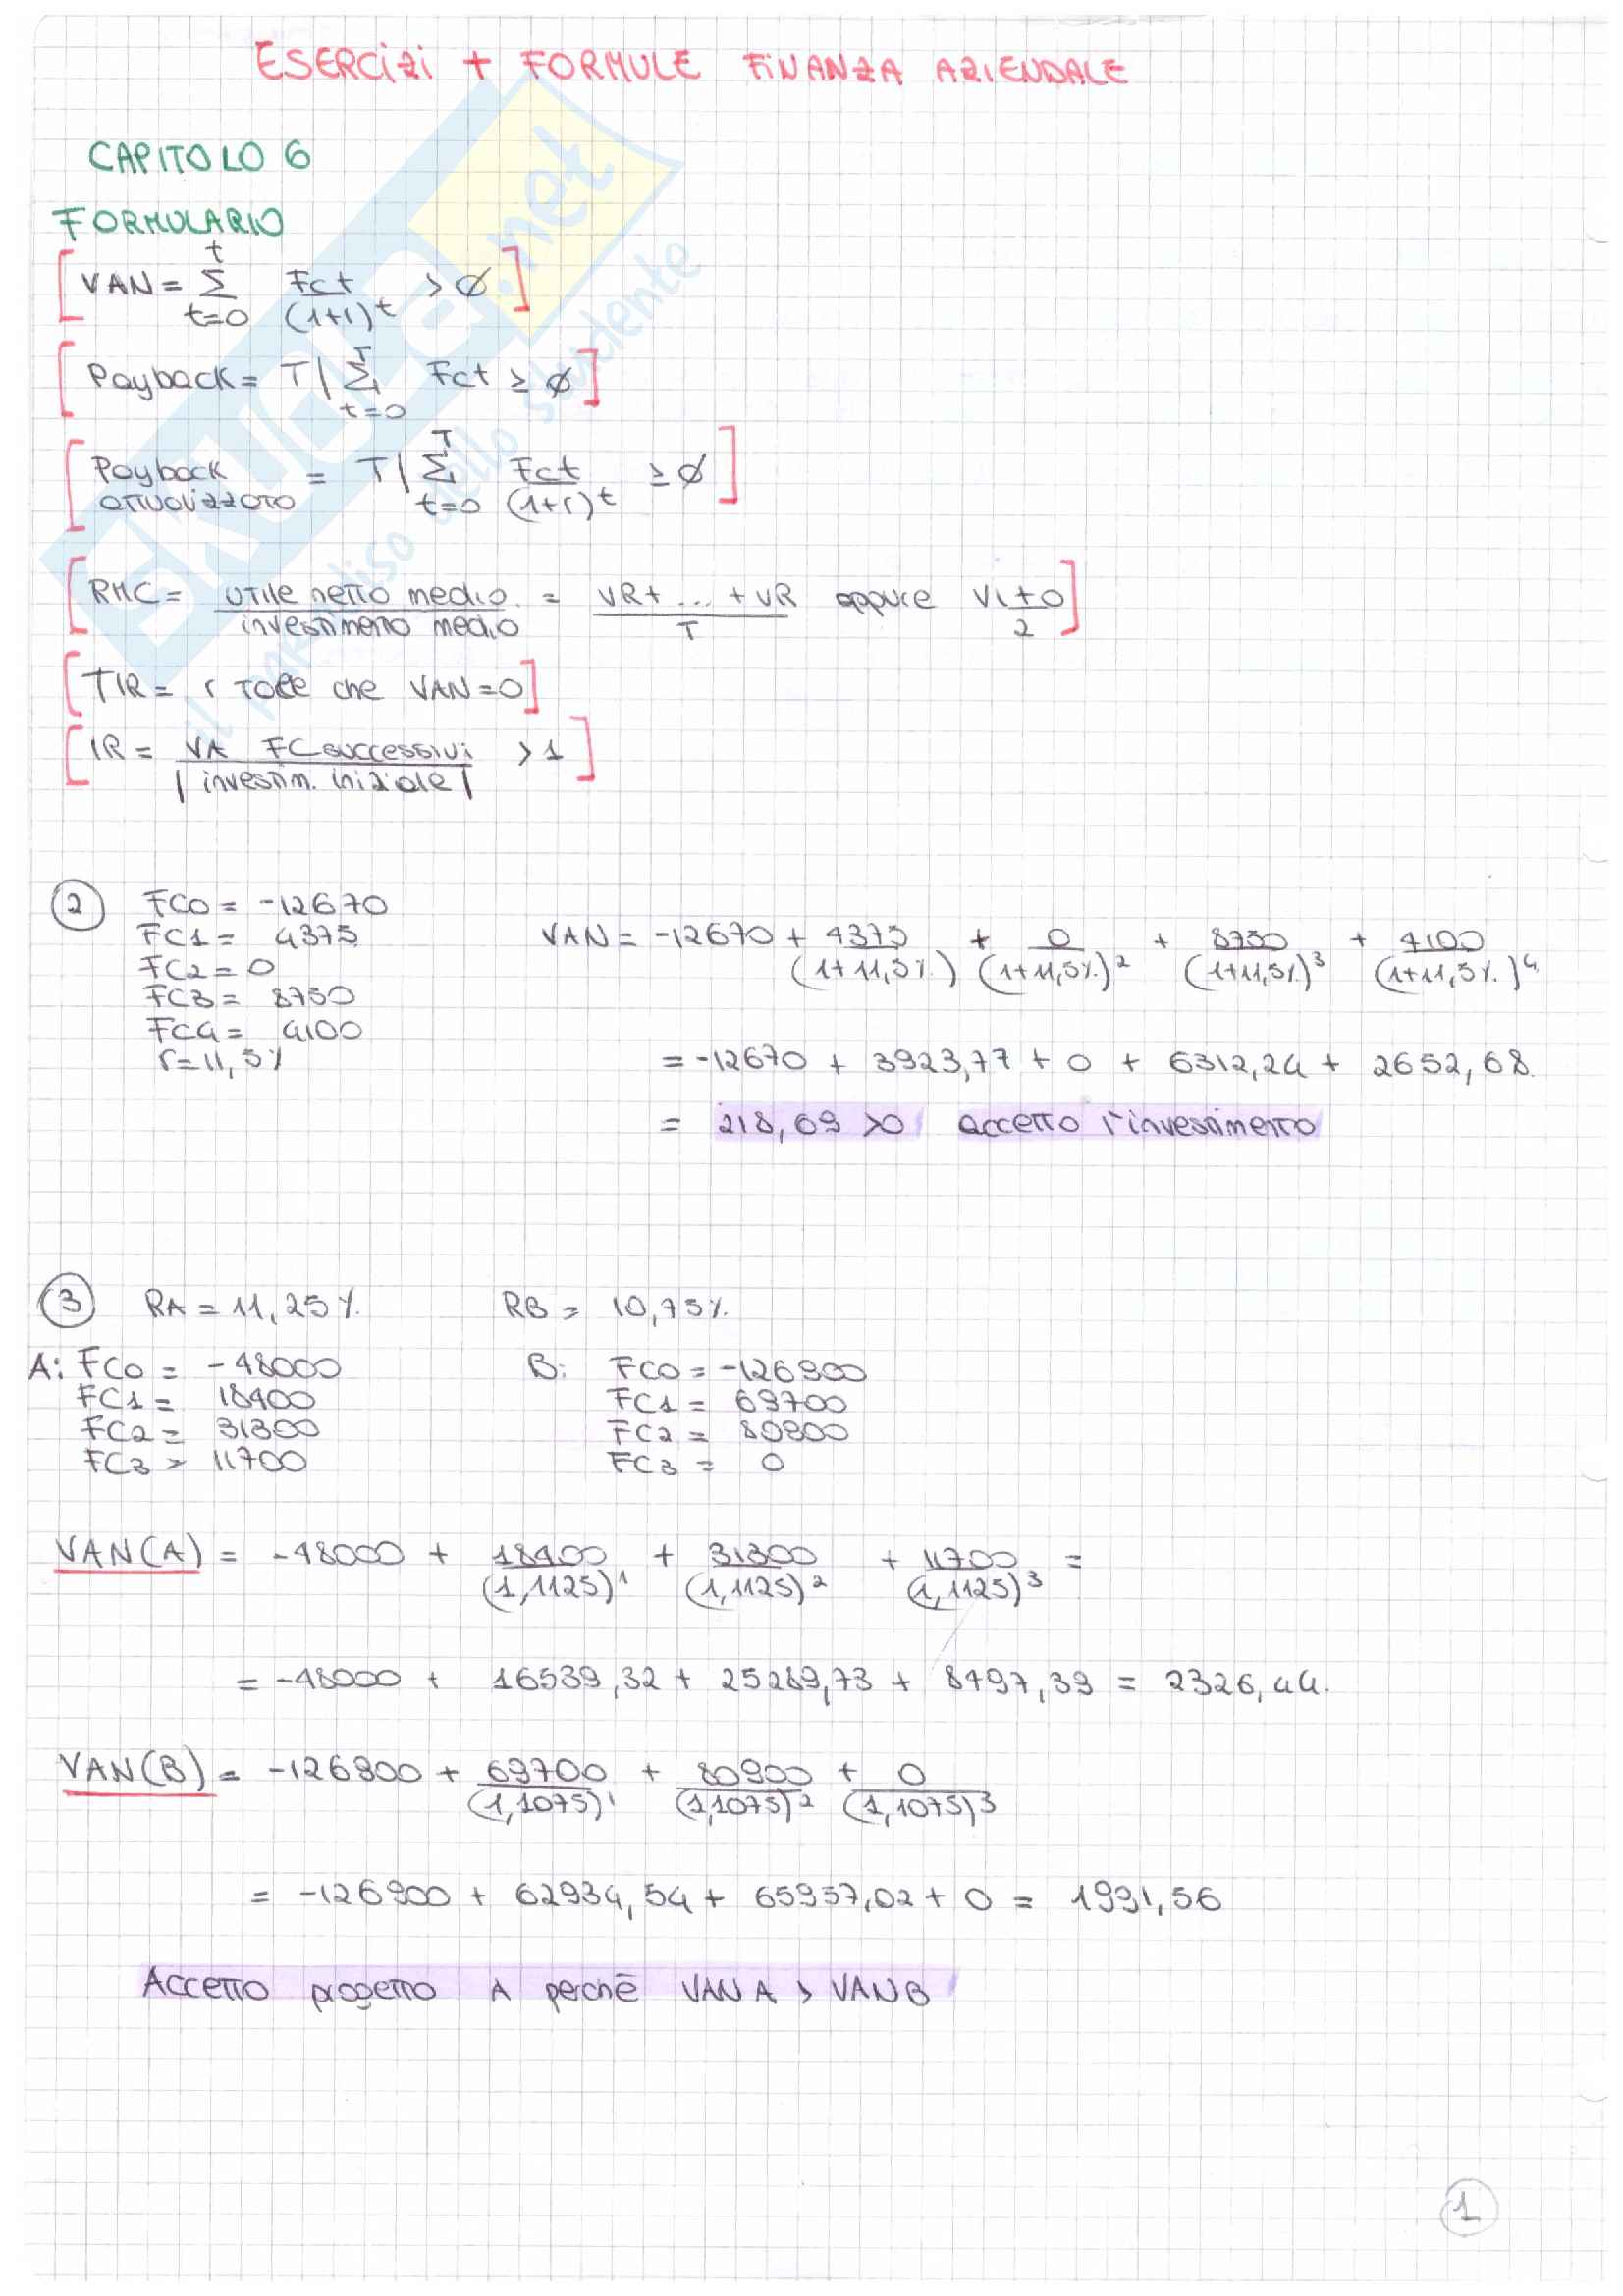 ESERCIZI + FORMULE FINANZA AZIENDALE
CAPITOLO 6
FORMULARIO
[VAN = Σ t=0 t Fct/(1+r)^t > ∅]
[Payback = T | Σ t=0 T Fct ≥ ∅]
[Payback attualizzato = T | Σ t=0 T Fct/(1+r)^t ≥ ∅]
[RMC = utile netto medio / investimento medio = VR + ... + VR / T oppure Vi + 0 / 2]
[TIR = r tale che VAN = 0]
[IR = VA FC successivi / |investim. iniziale| > 1]
2 FC0 = -12670
FC1 = 4375
FC2 = 0
FC3 = 8750
FC4 = 4100
r = 11,5%
VAN = -12670 + 4375/(1+11,5%) + 0/(1+11,5%)^2 + 8750/(1+11,5%)^3 + 4100/(1+11,5%)^4
= -12670 + 3923,77 + 0 + 6312,24 + 2652,68
= 218,69 > 0 accetto l'investimento
3 RA = 11,25% RB = 10,75%
A: FC0 = -48000 B: FC0 = -126900
FC1 = 18400 FC1 = 69700
FC2 = 31300 FC2 = 80900
FC3 = 11700 FC3 = 0
VAN(A) = -48000 + 18400/(1,1125)^1 + 31300/(1,1125)^2 + 11700/(1,1125)^3 =
= -48000 + 16539,32 + 25289,73 + 8497,39 = 2326,44.
VAN(B) = -126900 + 69700/(1,1075)^1 + 80900/(1,1075)^2 + 0/(1,1075)^3
= -126900 + 62934,54 + 65957,02 + 0 = 1991,56
Accetto progetto A perchè VAN A > VAN B
1
skuola.net
il paradiso dello studente